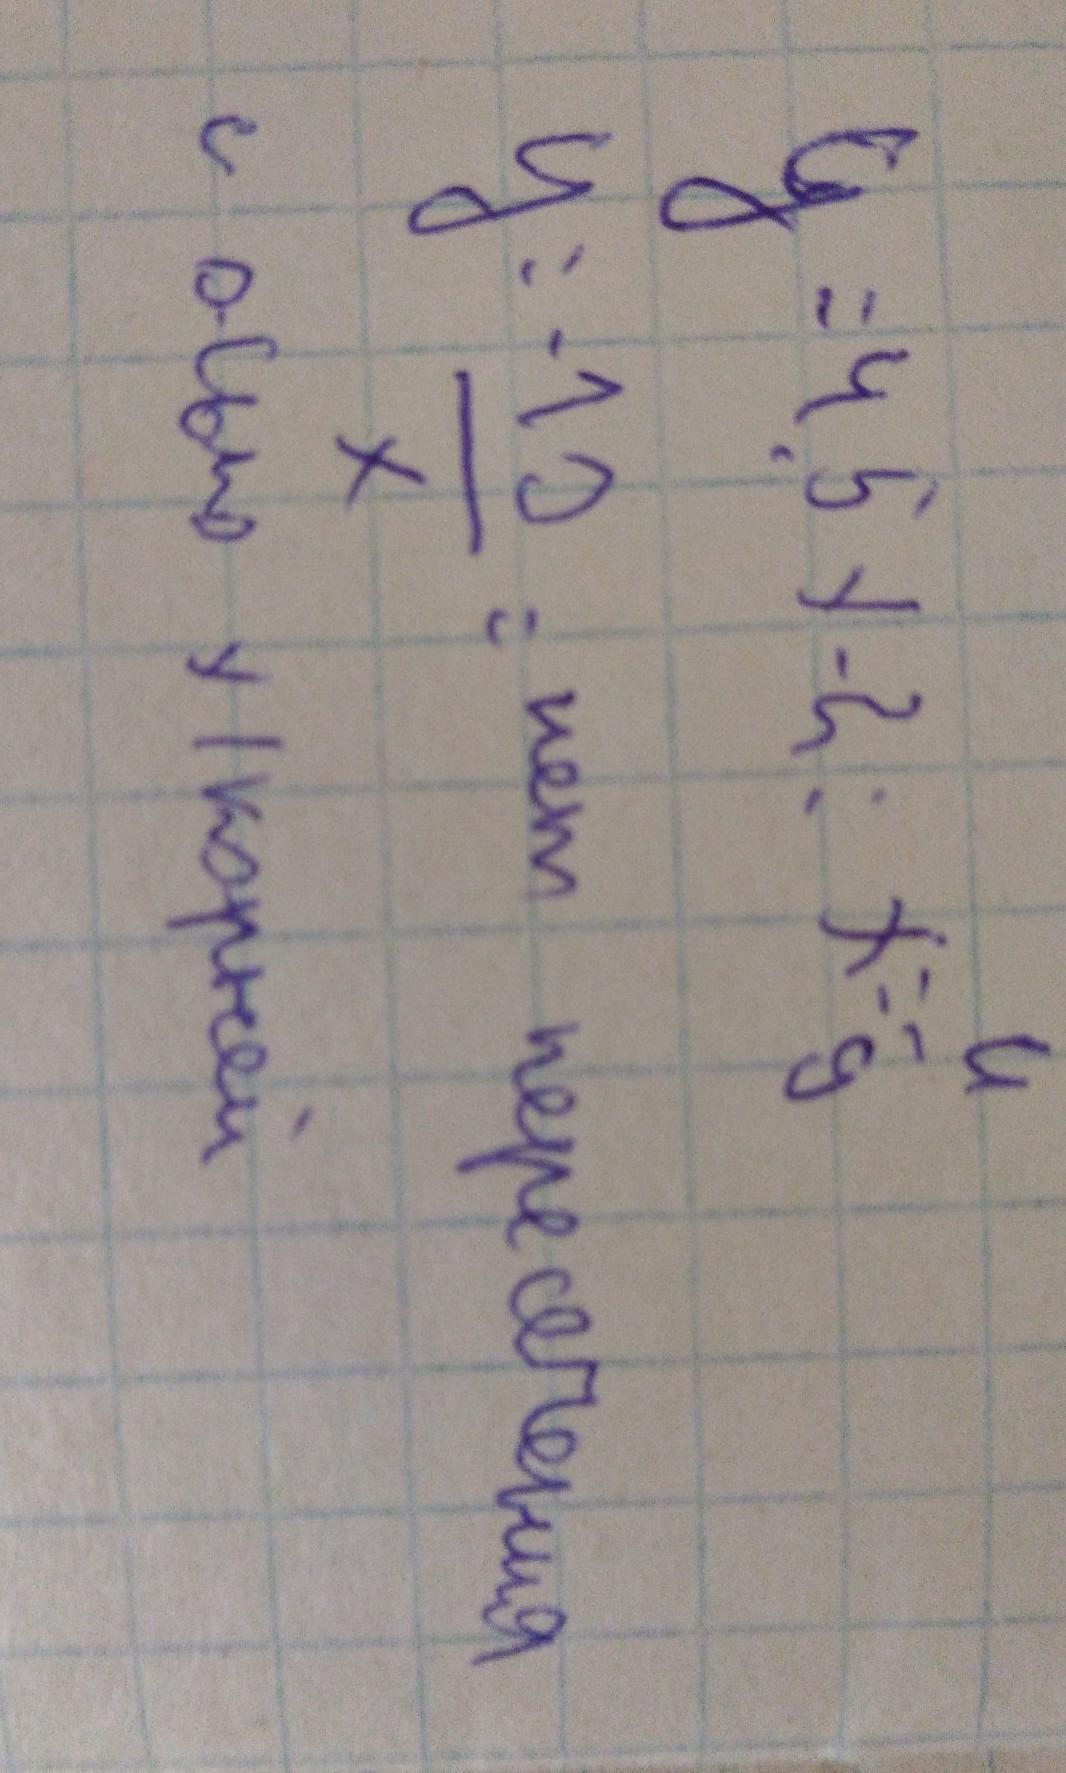 y = 4,5y - 2; x = 4/9
y = -10/x = нет пересечения
с осью y/корней